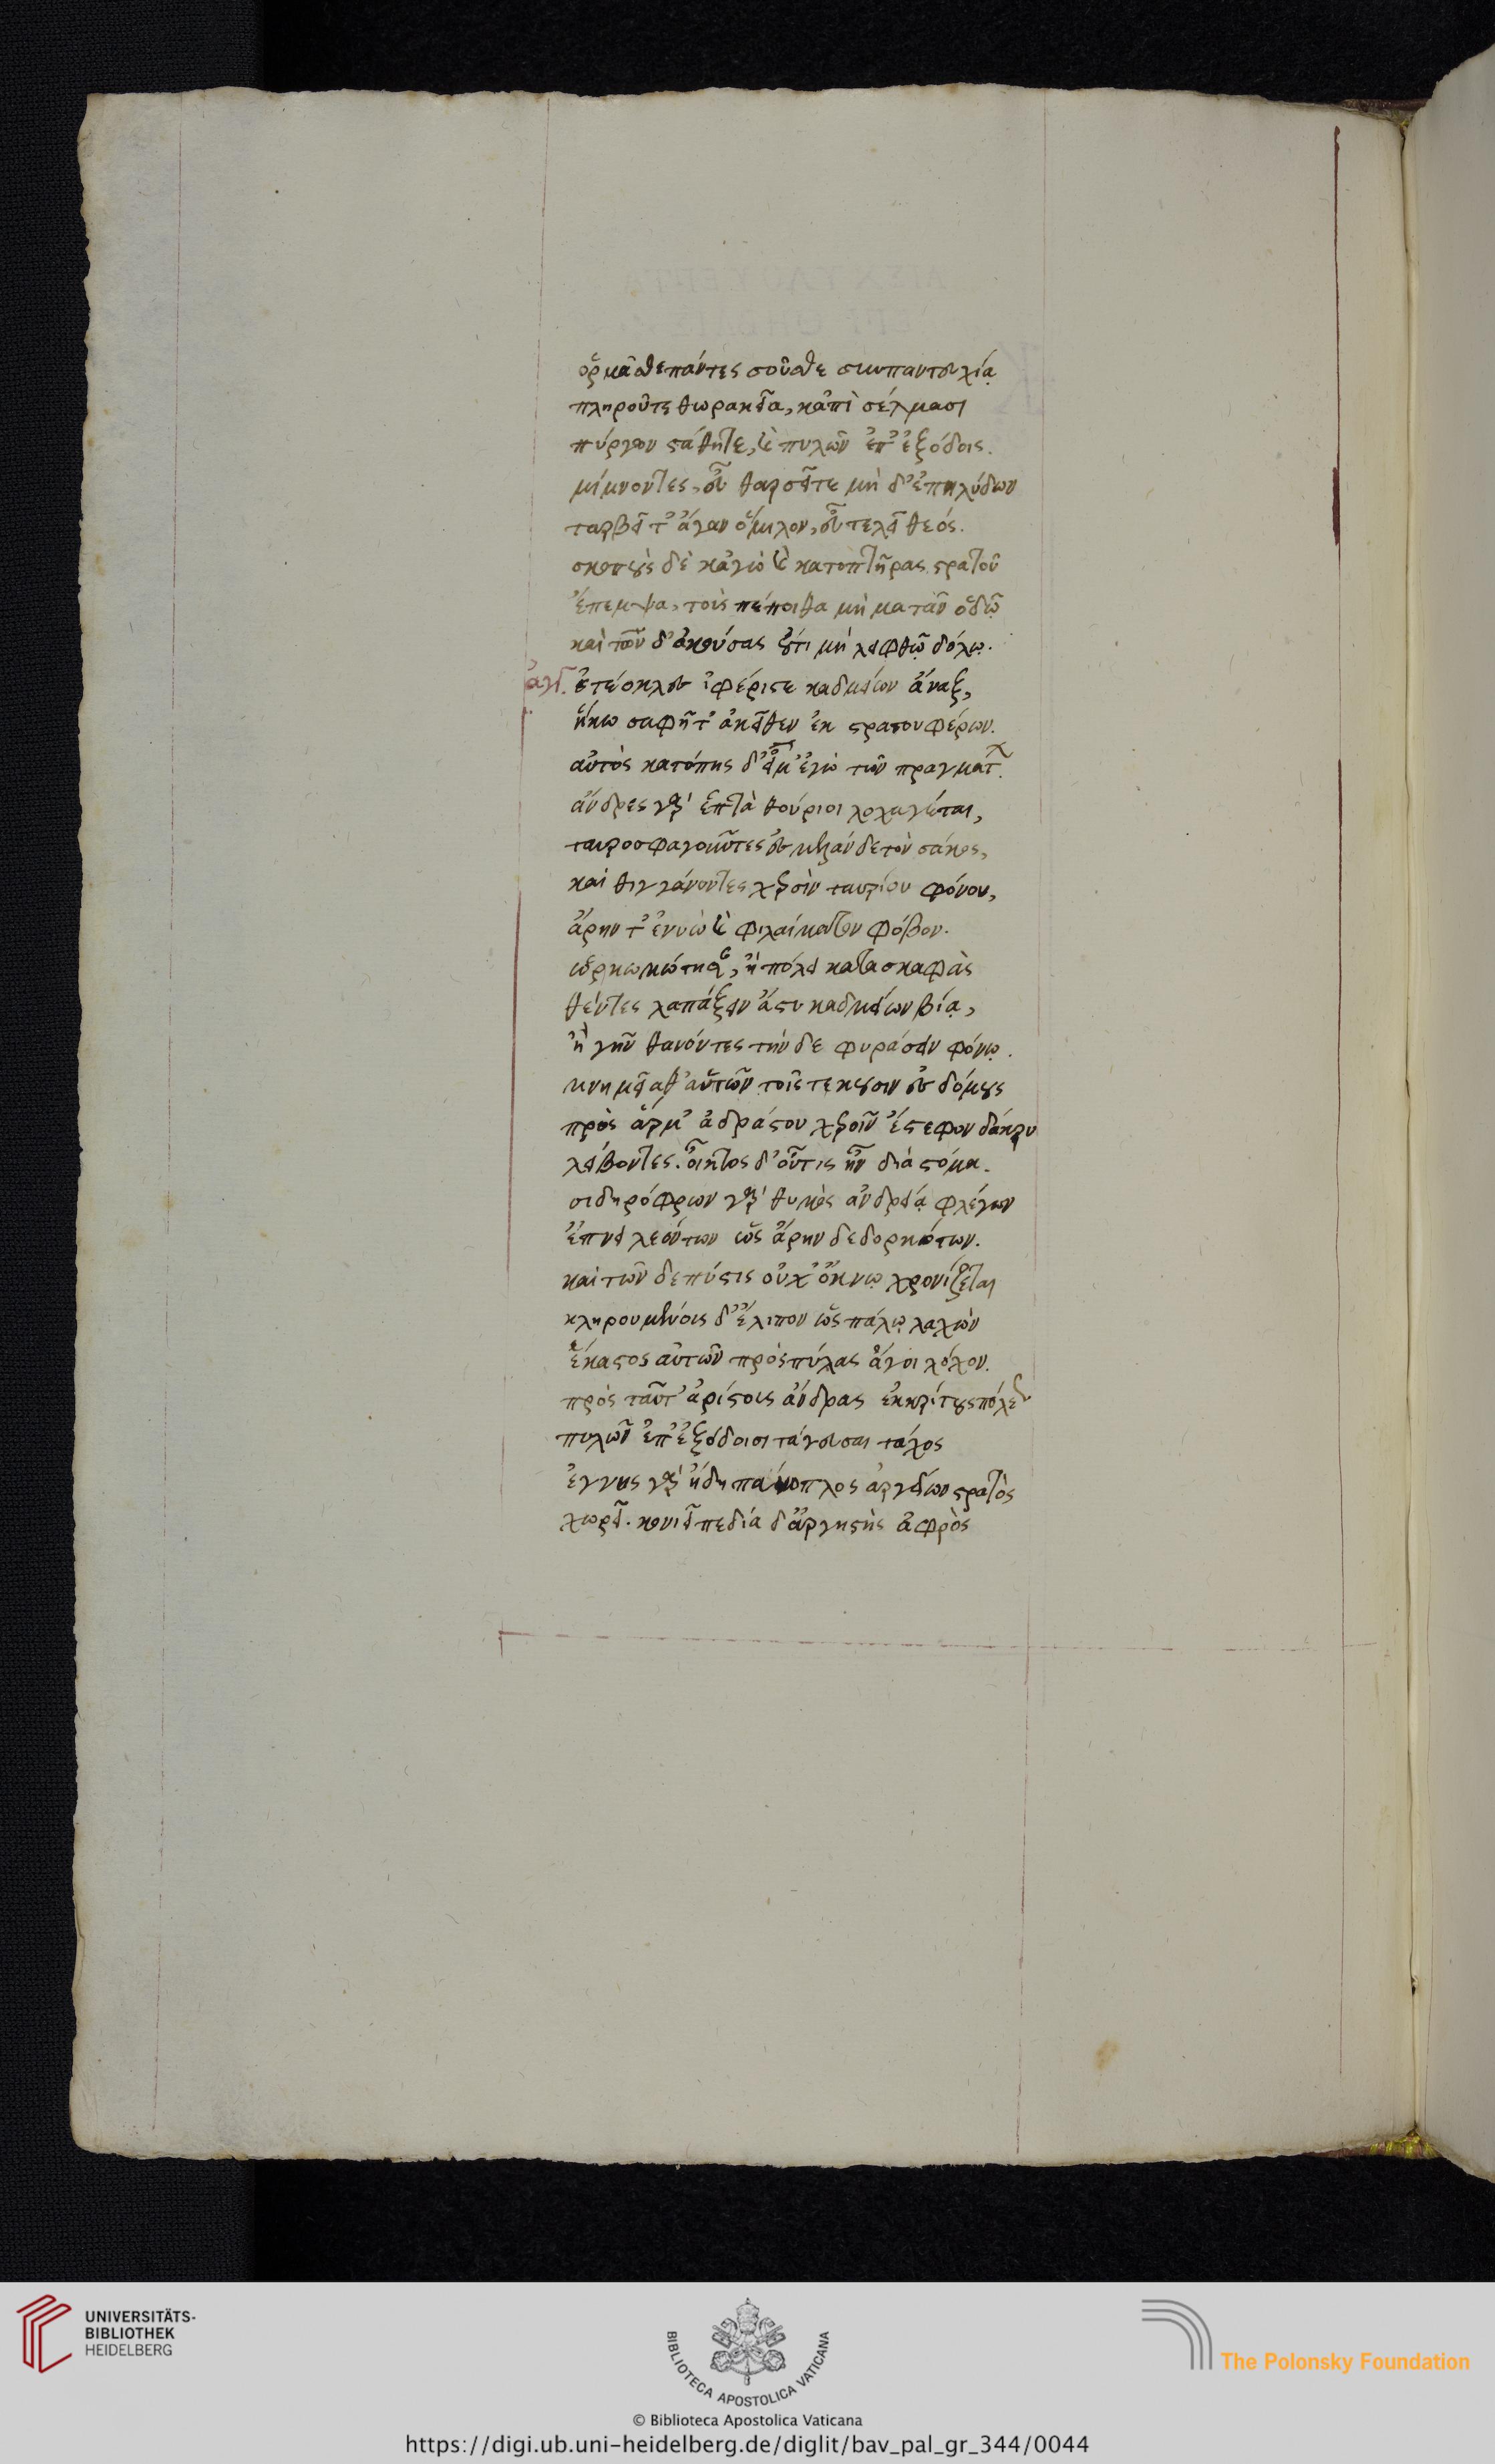 ὁρμᾶσθε πάντες σοῦσθε σὺν παντευχίᾳ
πληροῦτε θωρακεῖα, κἀπὶ σέλμασι
πύργων στάθητε, καὶ πυλῶν ἐπ' ἐξόδοις.
μίμνοντες, εὖ θαρσεῖτε μὴ δ' ἐπηλύδων
ταρβεῖτ' ἄγαν ὅμιλον, εὖ τελεῖ θεός.
σκοποὺς δὲ κἀγὼ καὶ κατοπτῆρας στρατοῦ
ἔπεμψα, τοῖς πέποιθα μὴ ματᾶν ὁδῷ
καὶ τῶνδ' ἀκούσας οὔτι μὴ λειφθῶ δόλῳ.
ἀγγ. ἐτεόκλεις φέριστε καδμείων ἄναξ,
ἥκω σαφῆ τ' ἀκεῖθεν ἐκ στρατου φέρων.
αὐτὸς κατόπης δ' εἴμ' ἐγὼ τῶν πραγμάτων.
ἄνδρες γὰρ ἑπτὰ θούριοι λοχαγέται,
ταυροσφαγοῦντες ἐς μελάνδετον σάκος,
καὶ θιγγάνοντες χερσὶν ταυρίου φόνου,
ἄρην τ' ἐνυὼ καὶ φιλαίματον φόβον.
ὡρκωμότησαν, ἢ πόλει κατασκαφὰς
θέντες λαπάξειν ἄστυ καδμείων βίᾳ,
ἢ γῆν θανόντες τήνδε φυράσειν φόνῳ.
μνημεῖα θ' αὑτῶν τοῖς τεκοῦσιν ἐς δόμους
πρὸς ἅρμ' ἀδράστου χερσὶν ἔστεφον δάκρυ
λείβοντες. οἶκτος δ' οὔτις ἦν διὰ στόμα.
σιδηρόφρων γὰρ θυμὸς ἀνδρείᾳ φλέγων
ἔπνει λεόντων ὡς ἄρην δεδορκότων.
καὶ τῶν δε πύστις οὐκ' ὄκνῳ χρονίζεται
κληρουμένους δ' ἔλιπον ὡς πάλῳ λαχὼν
ἕκαστος αὐτῶν πρὸς πύλας ἄγοι λόχον.
πρὸς ταῦτ' ἀρίστους ἄνδρας ἐκκρίτους πόλεως
πυλῶν ἐπ' ἐξόδοισι τάγευσαι τάχος
ἐγγὺς γὰρ ἤδη πάνοπλος ἀργείων στρατὸς
χωρεῖ. κονιεῖ πεδία δ' ἀργηστὴς ἀφρὸς
UNIVERSITÄTS-
BIBLIOTHEK
HEIDELBERG
BIBLIOTECA APOSTOLICA VATICANA
The Polonsky Foundation
© Biblioteca Apostolica Vaticana
https://digi.ub.uni-heidelberg.de/diglit/bav_pal_gr_344/0044